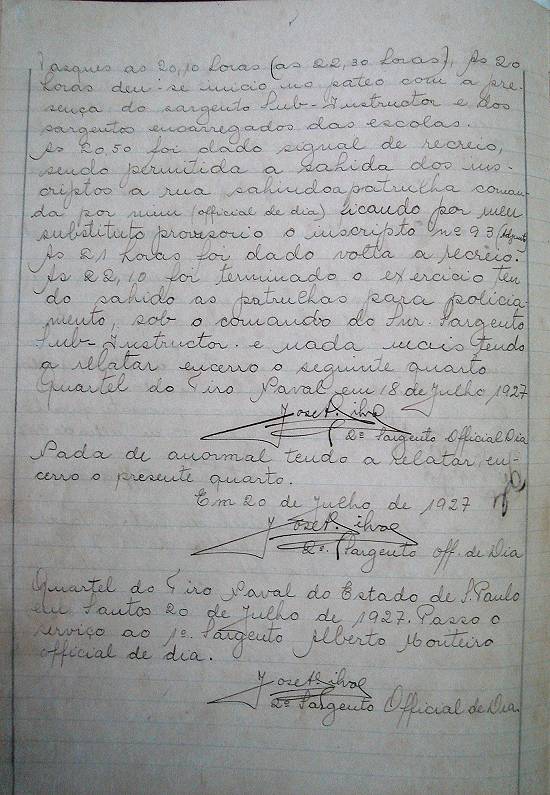 as 20,10 horas (as 22,30 horas), As 20
horas deu-se inicio no pateo com a pre-
sença do sargento Sub-Instructor e dos
sargentos encarregados das escolas.
As 20,50 foi dado signal de recreio,
sendo permitida a sahida dos ins-
criptos a rua sahindo a patrulha coman-
da por mim (official de dia) ficando por meu
substituto provisorio o inscripto nº 93
As 21 horas foi dado volta a recreio.
As 22,10 foi terminado o exercicio ten
do sahido as patrulhas para policia
mento, sob o comando do Snr. Sargento
Sub-Instructor. e nada mais tendo
a relatar encerro o seguinte quarto
Quartel do Tiro Naval em 18 de Julho 1927
2º Sargento Official Dia
Nada de anormal tendo a relatar, en-
cerro o presente quarto.
Em 20 de Julho de 1927
2º. Sargento Off. de Dia
Quartel do Tiro Naval do Estado de S. Paulo
em Santos 20 de Julho de 1927. Passo o
serviço ao 1º. Sargento Alberto Monteiro
official de dia.
2º Sargento Official de Dia